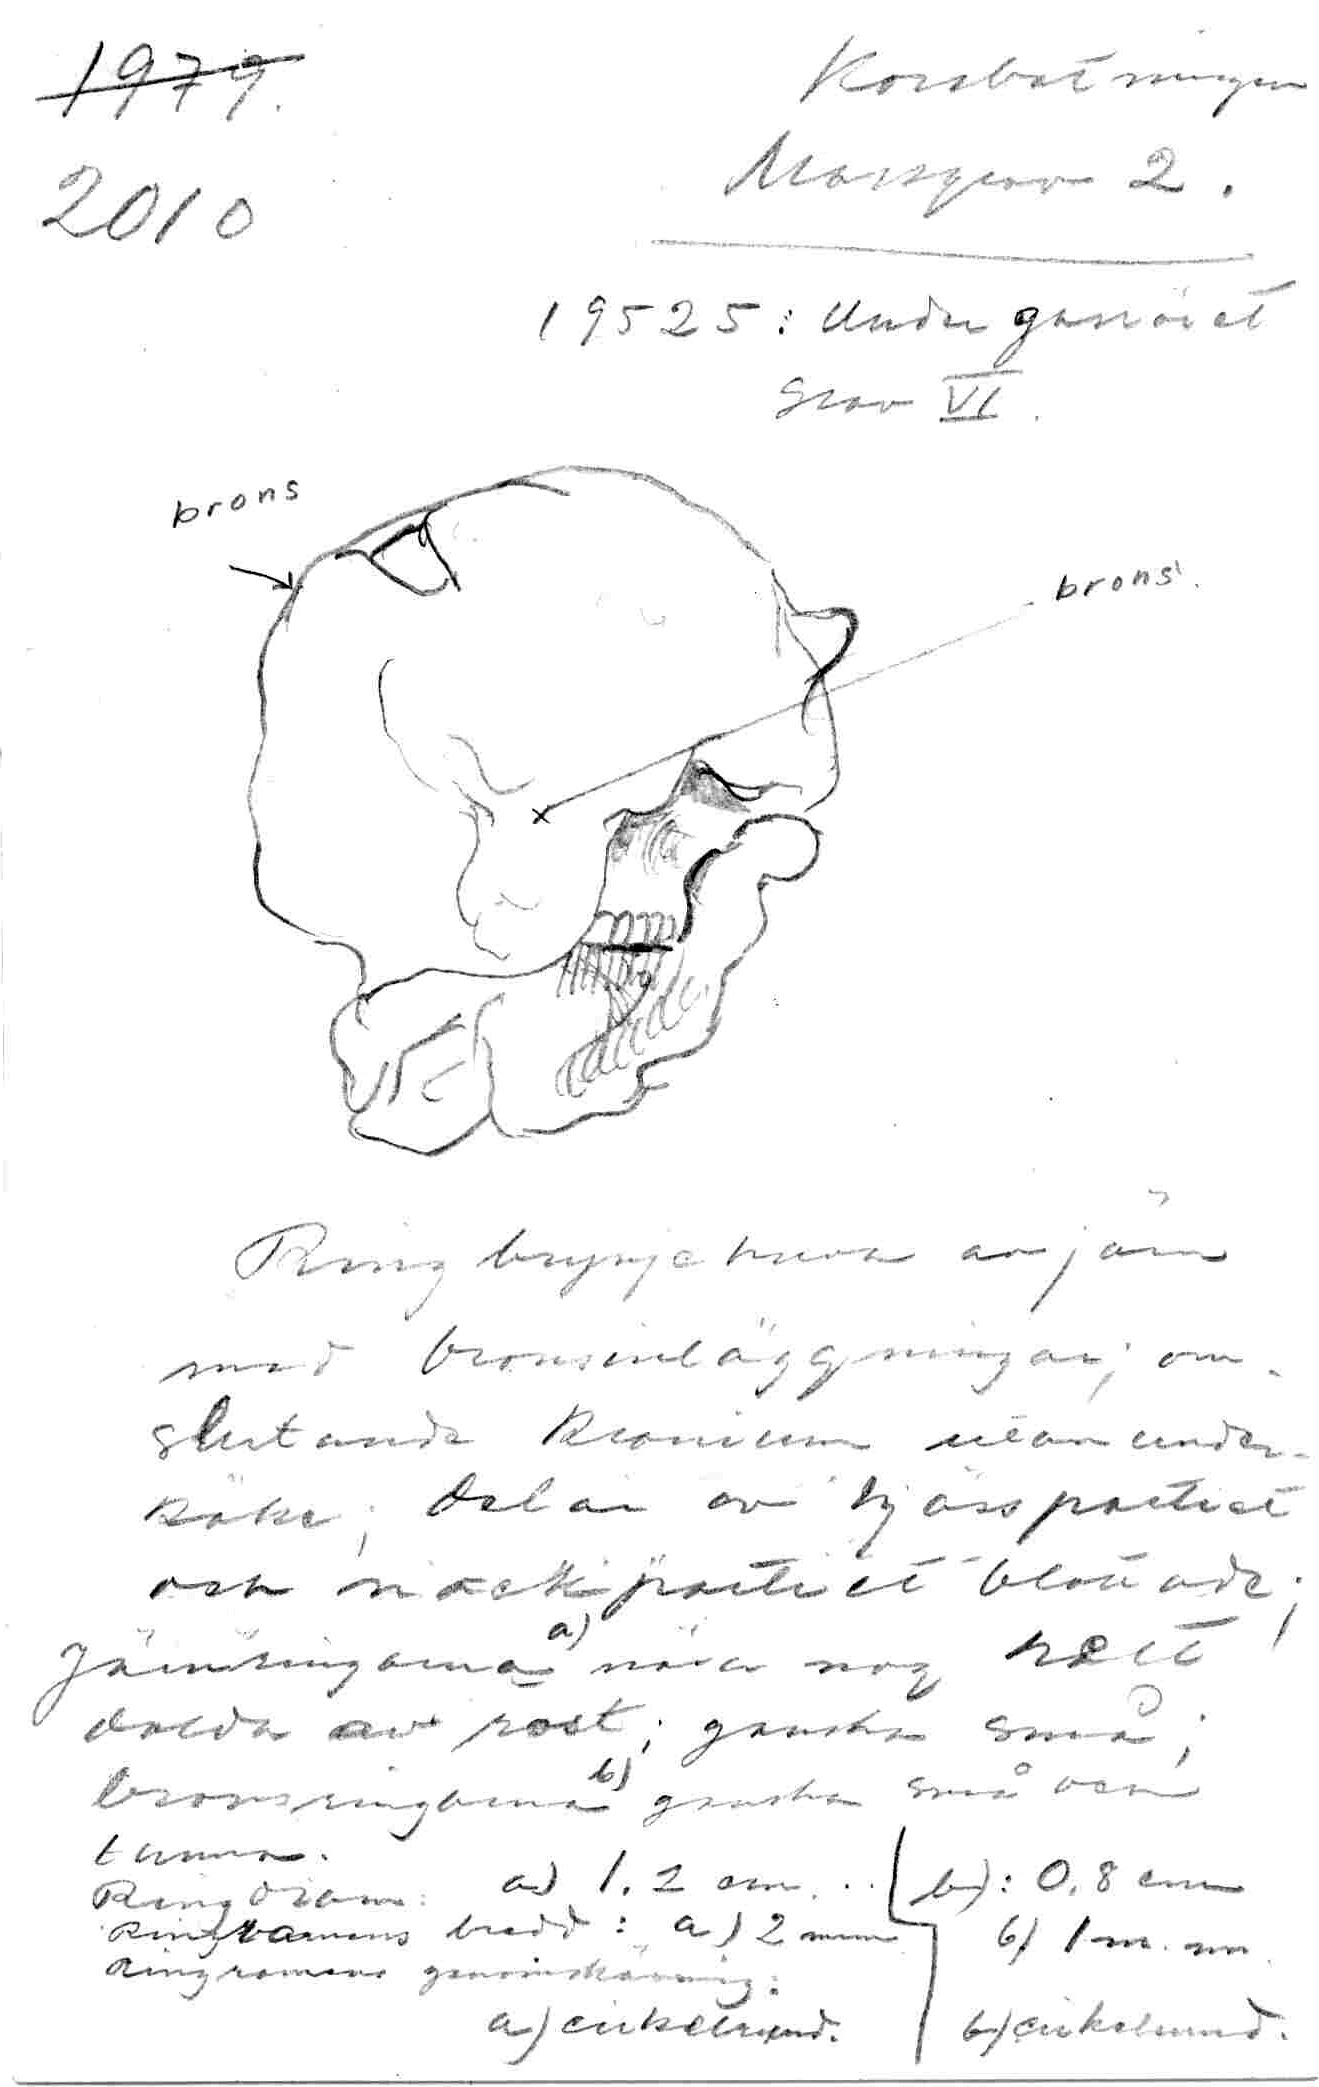 1979.
2010
Korsbetningen
Massgrav 2.
19525: Under gasröret
Grav VI.
brons
brons.
Ringbrynjehuva av järn
med bronsinläggningar; om-
slutande kranium utan under-
käke; delar av hjässpartiet
och nackpartiet blottade;
Järnringarna a) nära nog helt
dolda av rost; ganska små;
bronsringarna b) ganska små och
tunna.
Ringdiam: a) 1.2 cm... b): 0,8 cm
Ringramens bredd: a) 2 mm b) 1 m.m.
Ringramens genomskärning:
a) cirkelrund. b) cirkelrund.